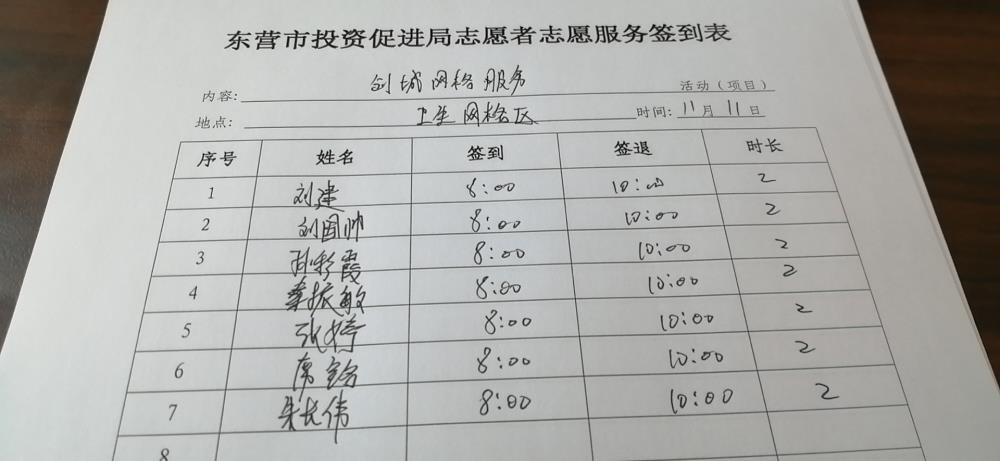 东营市投资促进局志愿者志愿服务签到表
内容: 创城网格服务 活动（项目）
地点: 卫生网格区 时间: 11月11日
序号 姓名 签到 签退 时长
1 刘建 8:00 10:00 2
2 刘国帅 8:00 10:00 2
3 孙彩霞 8:00 10:00 2
4 振敏 8:00 10:00 2
5 张婷 8:00 10:00 2
6 席铭 8:00 10:00 2
7 朱长伟 8:00 10:00 2
8